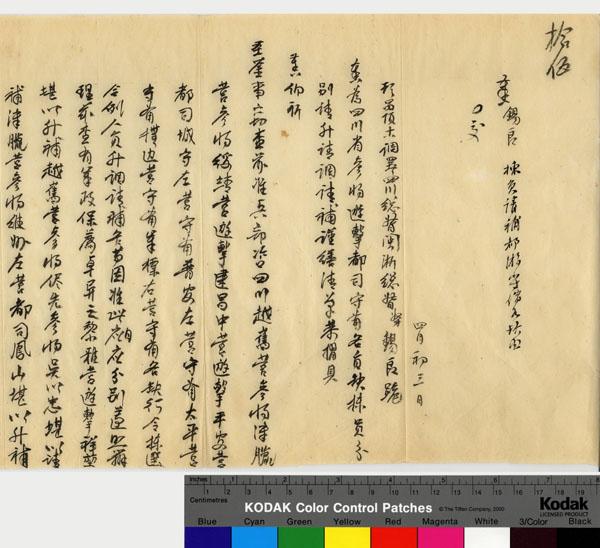 拾伍
奏 錫良 揀員請補都游守備各缺由
四月初三日
頭品頂戴調署四川總督閩浙總督錫良跪
奏為四川省參將遊擊都司守備各員缺揀員分
別請升請調請補謹繕清單恭摺具
奏仰祈
聖鑒事竊查前准兵部咨四川越嶲營參將
營參將綏靖營遊擊建昌中營遊擊平安營
都司城守左營守備普安左營守備太平營
守備 營守備 右營守備各缺行令揀選
合例人員升調請補各等因准此 應分別遵照辦
理茲查有 保薦卓異之黎雅營遊擊
堪以升補越嶲營參將 參將吳以忠堪以請
補 營參將維州左營都司鳳山堪以升補
Inches
Centimetres
KODAK Color Control Patches
© The Tiffen Company, 2000
Kodak
LICENSED PRODUCT
Blue Cyan Green Yellow Red Magenta White 3/Color Black